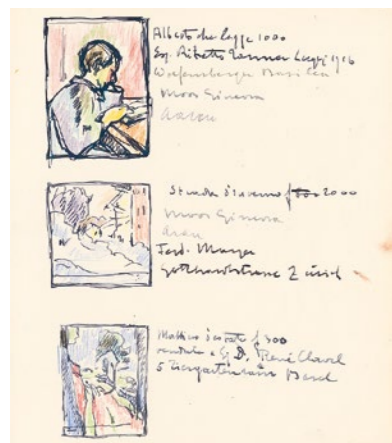 Alberto che legge 1000
Esp. Ritratto Tanner Luglio 1916
Wolfensberger Basilea
Moos Ginevra
Aarau
Strada d'inverno f 2000
Moos Ginevra
Aarau
Ferd. Mayer
Gotthardstrasse Zürich
Mattino d'estate f 300
venduto a Sg D. René Clavel
5 Tiergartenrain Basel